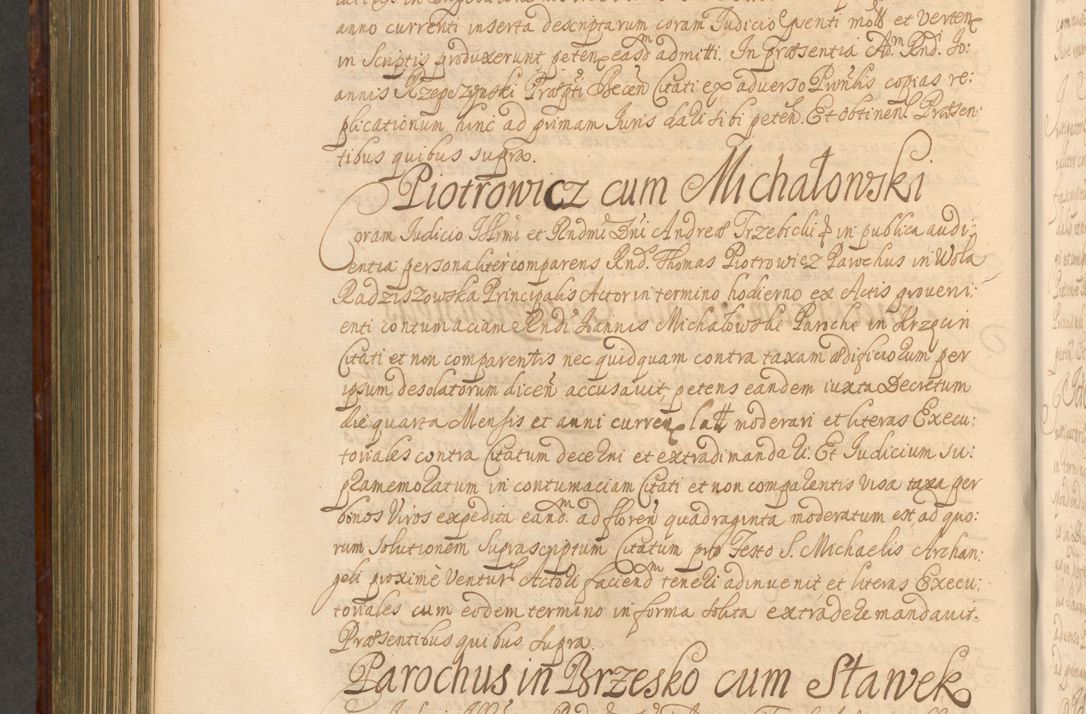 anno currenti inserta descriptarum coram Judicio pnti moḿ et verten
in Scriptis produxerunt peten easd admitti. In præsentia Adm. Rndi. Jo:
annis Rzepczynski Præpti citati ex adverso Pncipalis copias re:
plicationum hinc ad primam Juris dati sibi peten. Et obtinen. Præsen:
tibus quibus supra.
Piotrowicz cum Michałowski
Coram Judicio Illrmi et Rndmi Dni Andreæ Trzebicki in publica audi:
entia personaliter comparens Rnd. Thomas Piotrowicz Parochus in Wola
Radziszowska Principalis Actor in termino hodierno ex Actis proveni:
enti contumaciam Rndi Joannis Michałowski Parochi in Krzęcin
Citati et non comparentis nec quidquam contra taxam ædificiorum per
ipsum desolatorum dicen accusavit, petens eandem iuxta Decretum
die quarta Mensis et anni curren latt moderari et literas Execu:
toriales contra Citatum decerni et extradi mandari. Et Judicium su:
pramemoratum in contumaciam Citati et non comparentis visa taxa per
bonos Viros expedita eand. ad floren quadraginta moderatum est, ad quo:
rum solutionem suprascriptum Citatum pro Festo S. Michaelis Archan:
geli proximè Ventur Actori faciend teneri adinvenit et literas Execu:
toriales cum eodem termino in forma solita extradere mandavit.
Præsentibus quibus supra.
Parochus in Brzesko cum Sławek